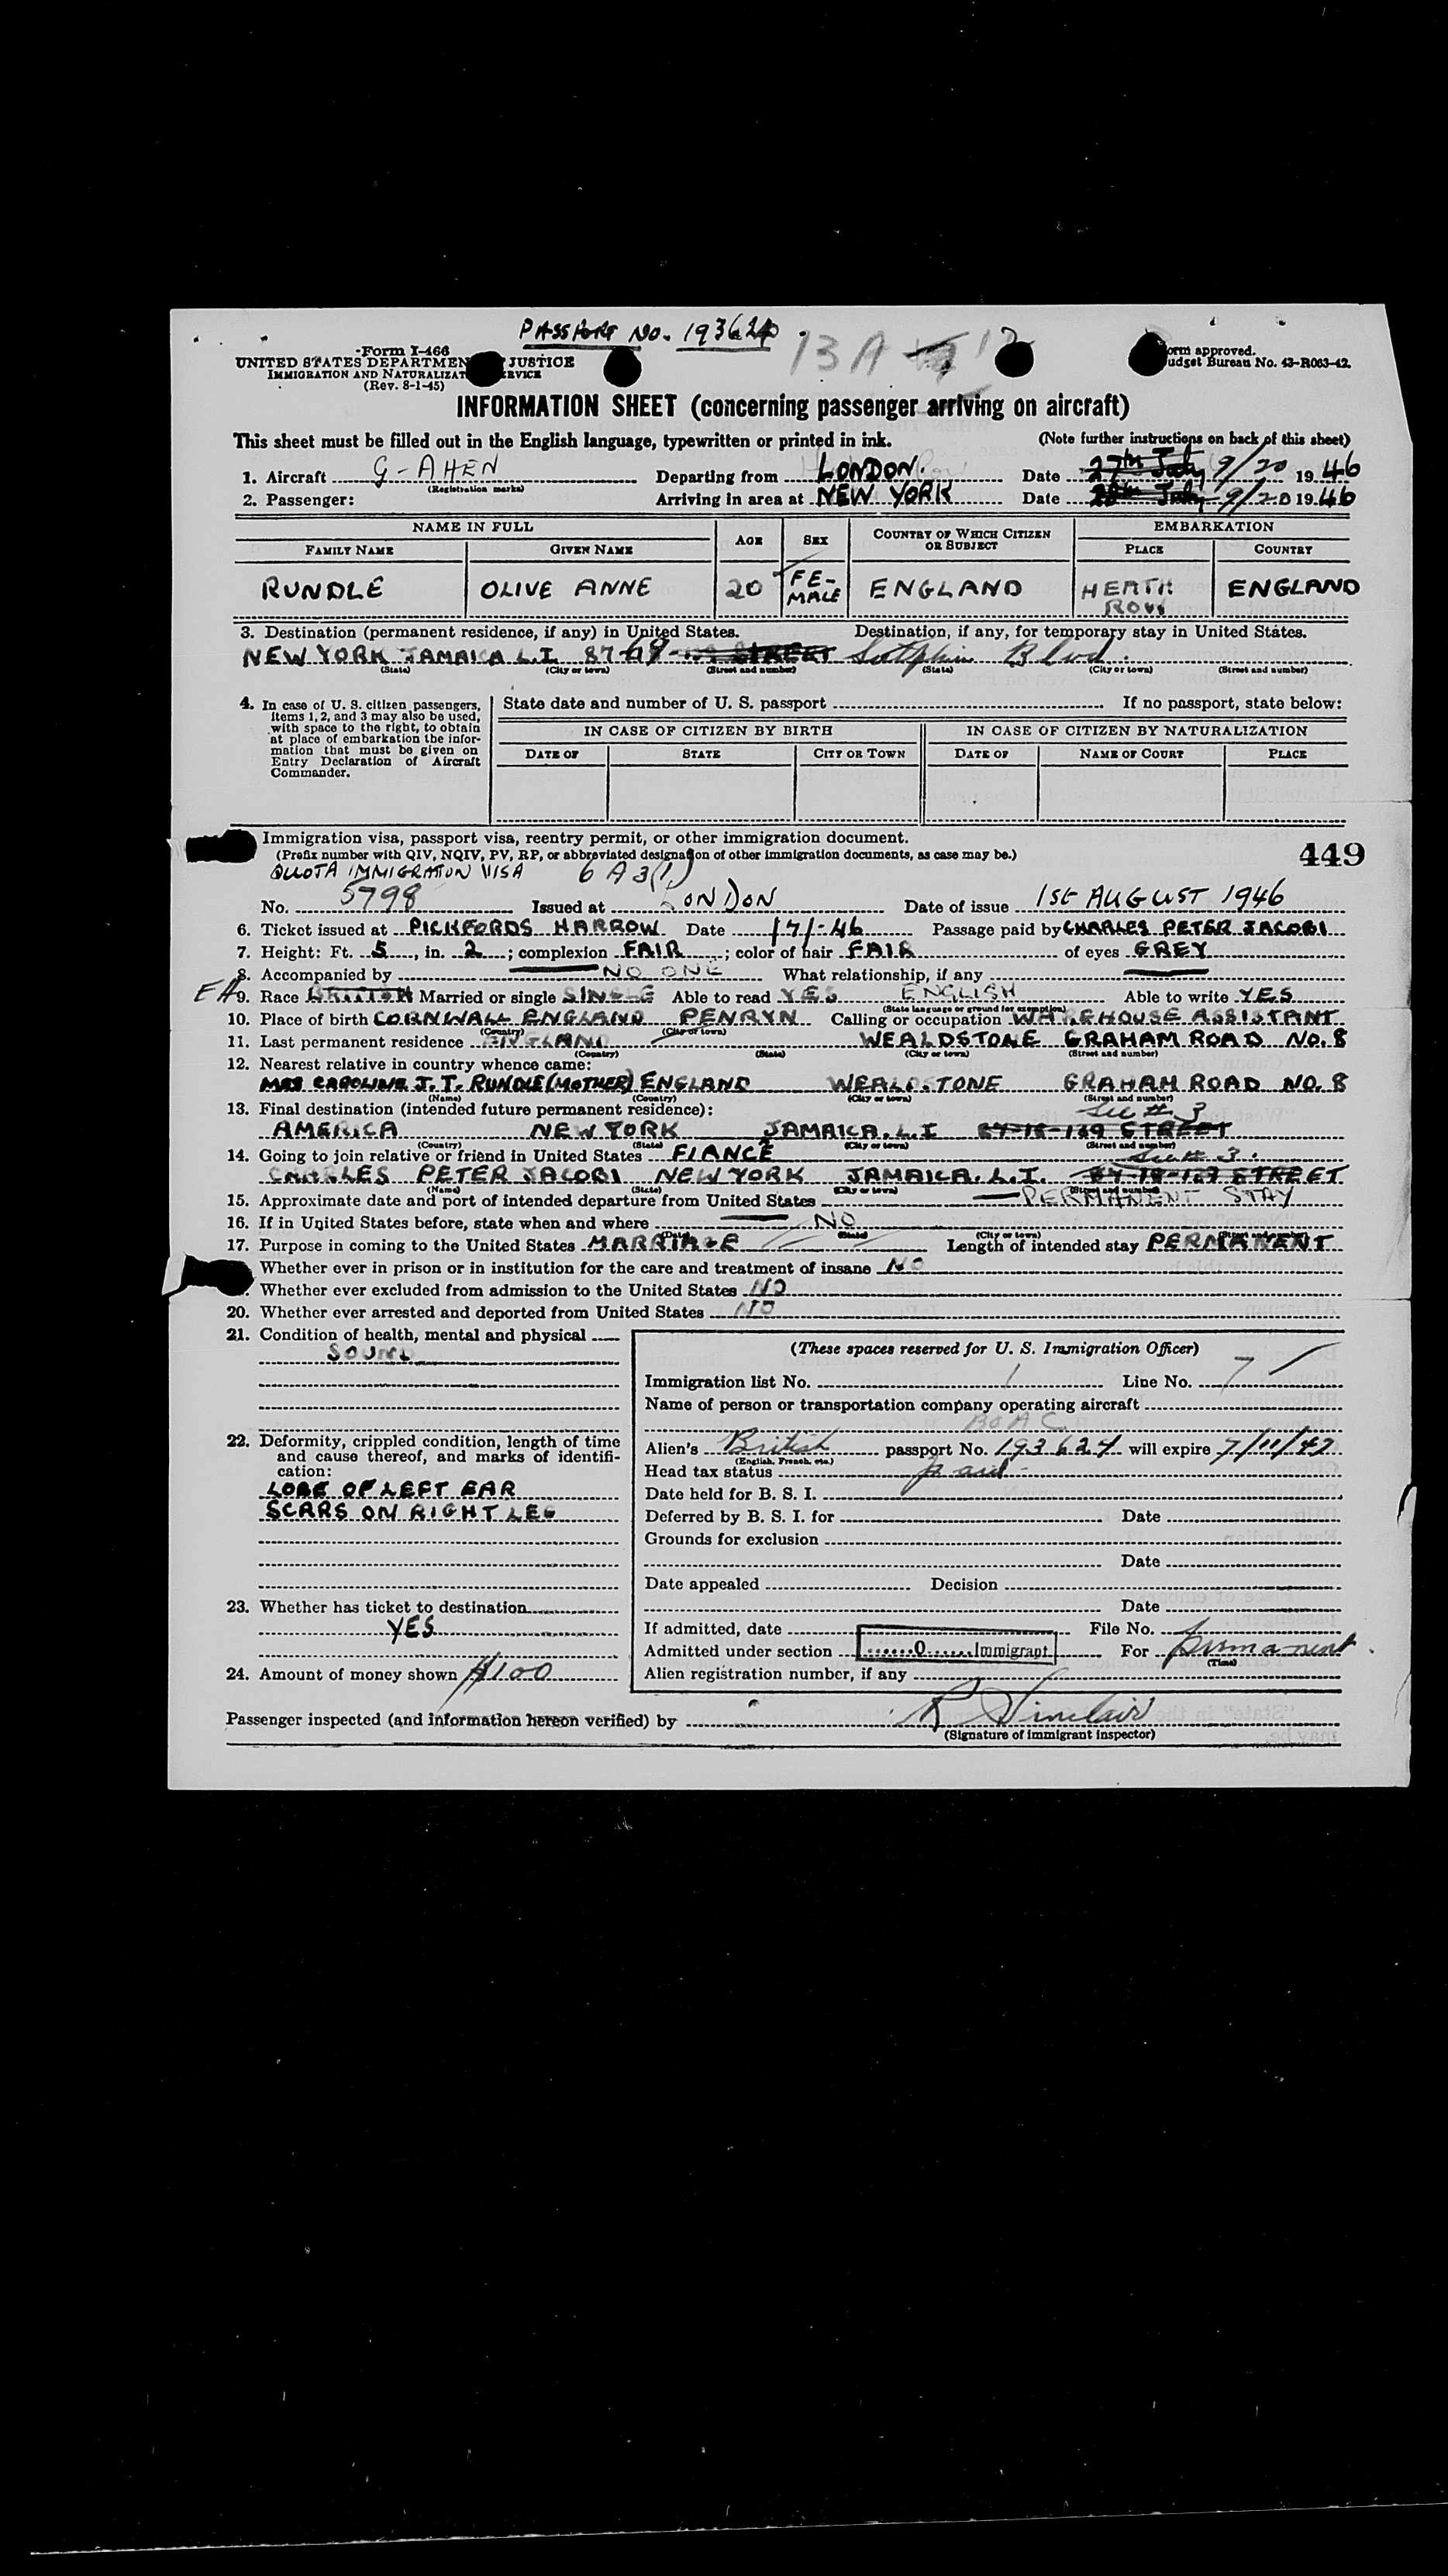 PASSPORT NO. 193624
13 A
Form I-466
UNITED STATES DEPARTMEN JUSTICE
IMMIGRATION AND NATURALIZAT ERVICE
(Rev. 8-1-45)
orm approved.
udget Bureau No. 43-R063-42.
INFORMATION SHEET (concerning passenger arriving on aircraft)
This sheet must be filled out in the English language, typewritten or printed in ink. (Note further instructions on back of this sheet)
1. Aircraft G-AHEN Departing from LONDON. Date 27th July 9/20 1946
(Registration marks)
2. Passenger: Arriving in area at NEW YORK Date 28th July 9/20 1946
NAME IN FULL AGE SEX COUNTRY OF WHICH CITIZEN OR SUBJECT EMBARKATION
FAMILY NAME GIVEN NAME PLACE COUNTRY
RUNDLE OLIVE ANNE 20 FE-MALE ENGLAND HEATH ROW ENGLAND
3. Destination (permanent residence, if any) in United States. Destination, if any, for temporary stay in United States.
NEW YORK JAMAICA L.I. 87-69 STREET Sutphin Blvd.
(State) (City or town) (Street and number) (State) (City or town) (Street and number)
4. In case of U. S. citizen passengers, items 1, 2, and 3 may also be used, with space to the right, to obtain at place of embarkation the information that must be given on Entry Declaration of Aircraft Commander.
State date and number of U. S. passport If no passport, state below:
IN CASE OF CITIZEN BY BIRTH IN CASE OF CITIZEN BY NATURALIZATION
DATE OF STATE CITY OR TOWN DATE OF NAME OF COURT PLACE
Immigration visa, passport visa, reentry permit, or other immigration document.
(Prefix number with QIV, NQIV, PV, RP, or abbreviated designation of other immigration documents, as case may be.)
449
QUOTA IMMIGRATION VISA 6 A 3(1)
No. 5798 Issued at LONDON Date of issue 1st AUGUST 1946
6. Ticket issued at PICKFORDS HARROW Date 17/-46 Passage paid by CHARLES PETER JACOBI
7. Height: Ft. 5, in. 2; complexion FAIR; color of hair FAIR of eyes GREY
8. Accompanied by NO ONE What relationship, if any
9. Race Married or single SINGLE Able to read YES ENGLISH Able to write YES
(State language or ground for exemption)
10. Place of birth CORNWALL ENGLAND PENRYN Calling or occupation WAREHOUSE ASSISTANT
(Country) (City or town)
11. Last permanent residence ENGLAND WEALDSTONE GRAHAM ROAD NO. 8
(Country) (State) (City or town) (Street and number)
12. Nearest relative in country whence came:
MRS CAROLINE J. T. RUNDLE (MOTHER) ENGLAND WEALDSTONE GRAHAM ROAD NO. 8
(Name) (Country) (City or town) (Street and number)
13. Final destination (intended future permanent residence): See # 3
AMERICA NEW YORK JAMAICA. L.I 87-18-139 STREET
(Country) (State) (City or town) (Street and number)
14. Going to join relative or friend in United States FIANCÉ See # 3.
CHARLES PETER JACOBI NEW YORK JAMAICA. L.I. 87-18-139 STREET
(Name) (State) (City or town) (Street and number)
15. Approximate date and port of intended departure from United States PERMANENT STAY
16. If in United States before, state when and where NO
(Date) (State) (City or town) (Street and number)
17. Purpose in coming to the United States MARRIAGE Length of intended stay PERMANENT
Whether ever in prison or in institution for the care and treatment of insane NO
Whether ever excluded from admission to the United States NO
20. Whether ever arrested and deported from United States NO
21. Condition of health, mental and physical
SOUND
22. Deformity, crippled condition, length of time and cause thereof, and marks of identification:
LOBE OF LEFT EAR
SCARS ON RIGHT LEG
23. Whether has ticket to destination
YES
24. Amount of money shown $100
(These spaces reserved for U. S. Immigration Officer)
Immigration list No. 1 Line No. 7
Name of person or transportation company operating aircraft
BOAC
Alien's British passport No. 193624 will expire 7/11/47
(English, French, etc.)
Head tax status paid
Date held for B. S. I.
Deferred by B. S. I. for Date
Grounds for exclusion
Date
Date appealed Decision
Date
If admitted, date File No.
Admitted under section Q Immigrant For permanent
(Time)
Alien registration number, if any
Passenger inspected (and information hereon verified) by R Sinclair
(Signature of immigrant inspector)